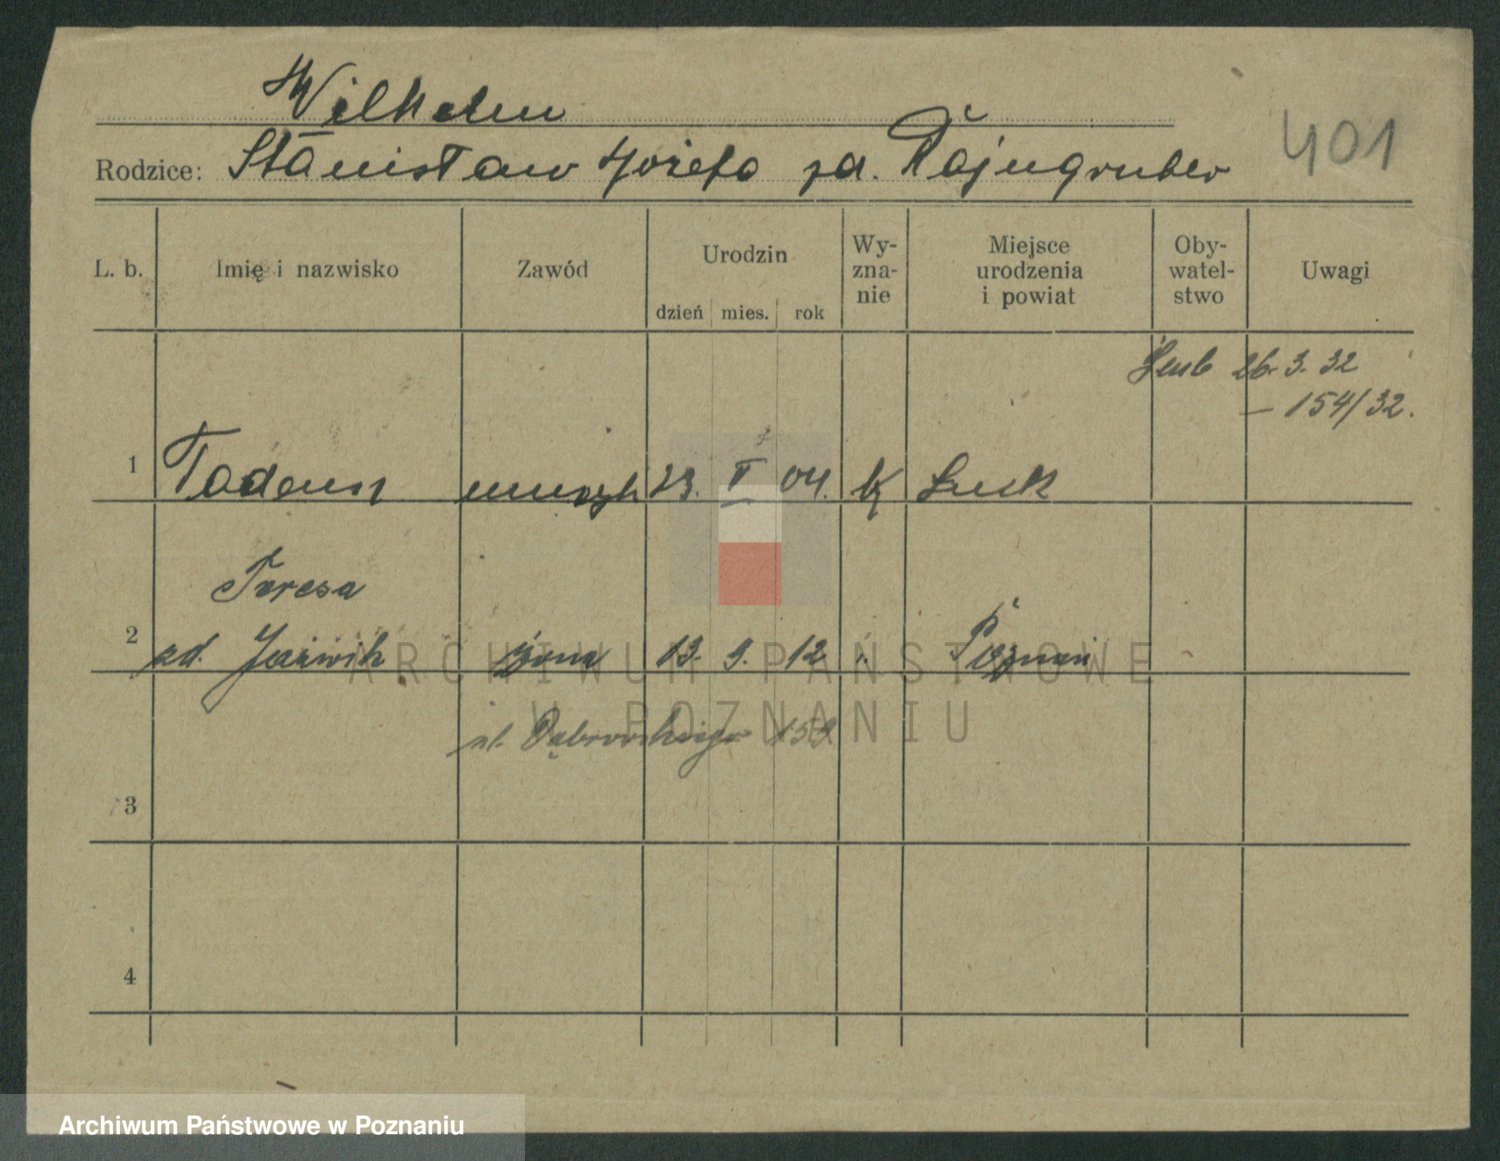 Wilhelm
401
Rodzice: Stanisław Józefa zd. Rajngruber
L. b. Imię i nazwisko Zawód Urodzin dzień mies. rok Wy-zna-nie Miejsce urodzenia i powiat Oby-watel-stwo Uwagi
26. 3. 32
— 154/32.
1 Tadeusz 23. V 04. k
Teresa
2 zd. Jaźwik żona 13. 9. 12 " Poznań
ARCHIWUM PAŃSTWOWE
W POZNANIU
ul. Dąbrowskiego
3
4
Archiwum Państwowe w Poznaniu